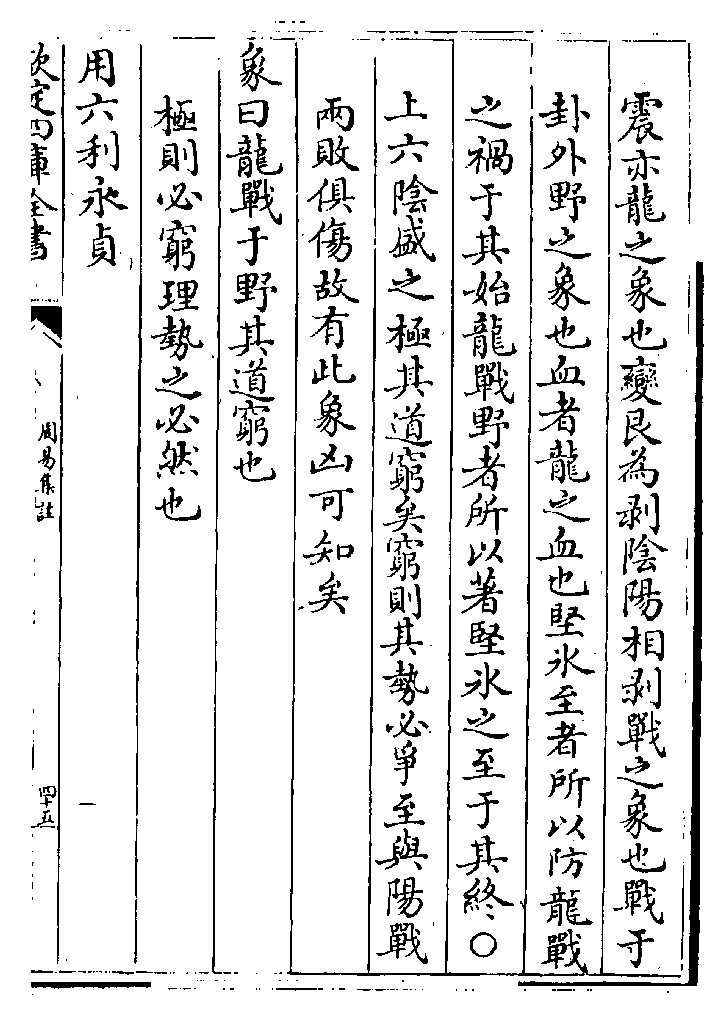 震亦龍之象也變艮為剥陰陽相剥戰之象也戰于
卦外野之象也血者龍之血也堅氷至者所以防龍戰
之禍于其始龍戰野者所以著堅氷之至于其終〇
上六陰盛之極其道窮矣窮則其勢必爭至與陽戰
兩敗俱傷故有此象凶可知矣
象曰龍戰于野其道窮也
極則必窮理勢之必然也
用六利永貞
欽定四庫全書
周易集註
四十五